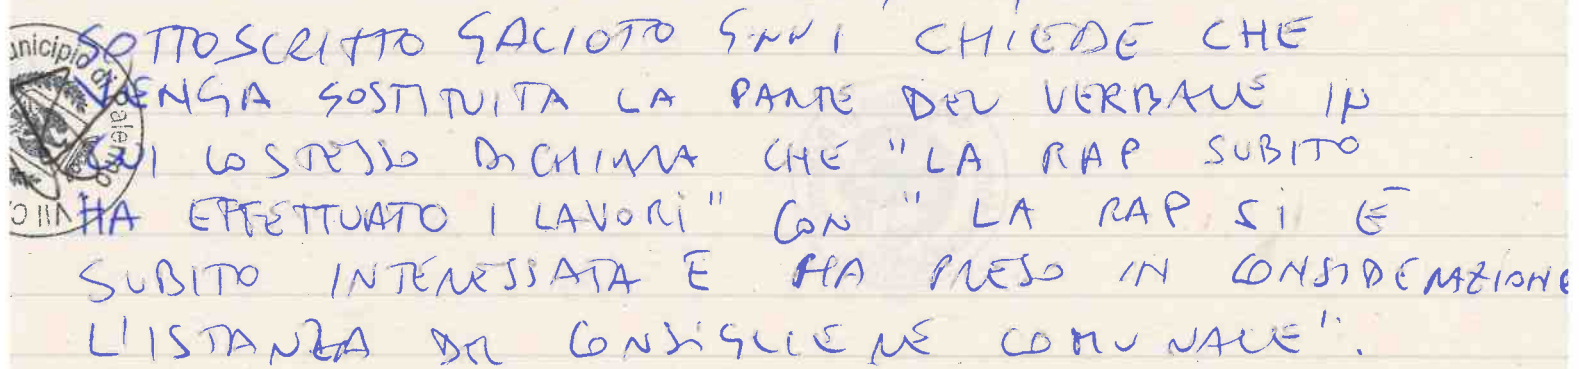 SOTTOSCRITTO GACIOTO GNNI CHIEDE CHE
VENGA SOSTITUITA LA PARTE DEL VERBALE IN
CUI LO STESSO DICHIARA CHE "LA RAP SUBITO
HA EFFETTUATO I LAVORI" CON "LA RAP SI È
SUBITO INTERESSATA E HA PRESO IN CONSIDERAZIONE
L'ISTANZA DEL CONSIGLIERE COMUNALE".
unicipio di Palermo
VIII C